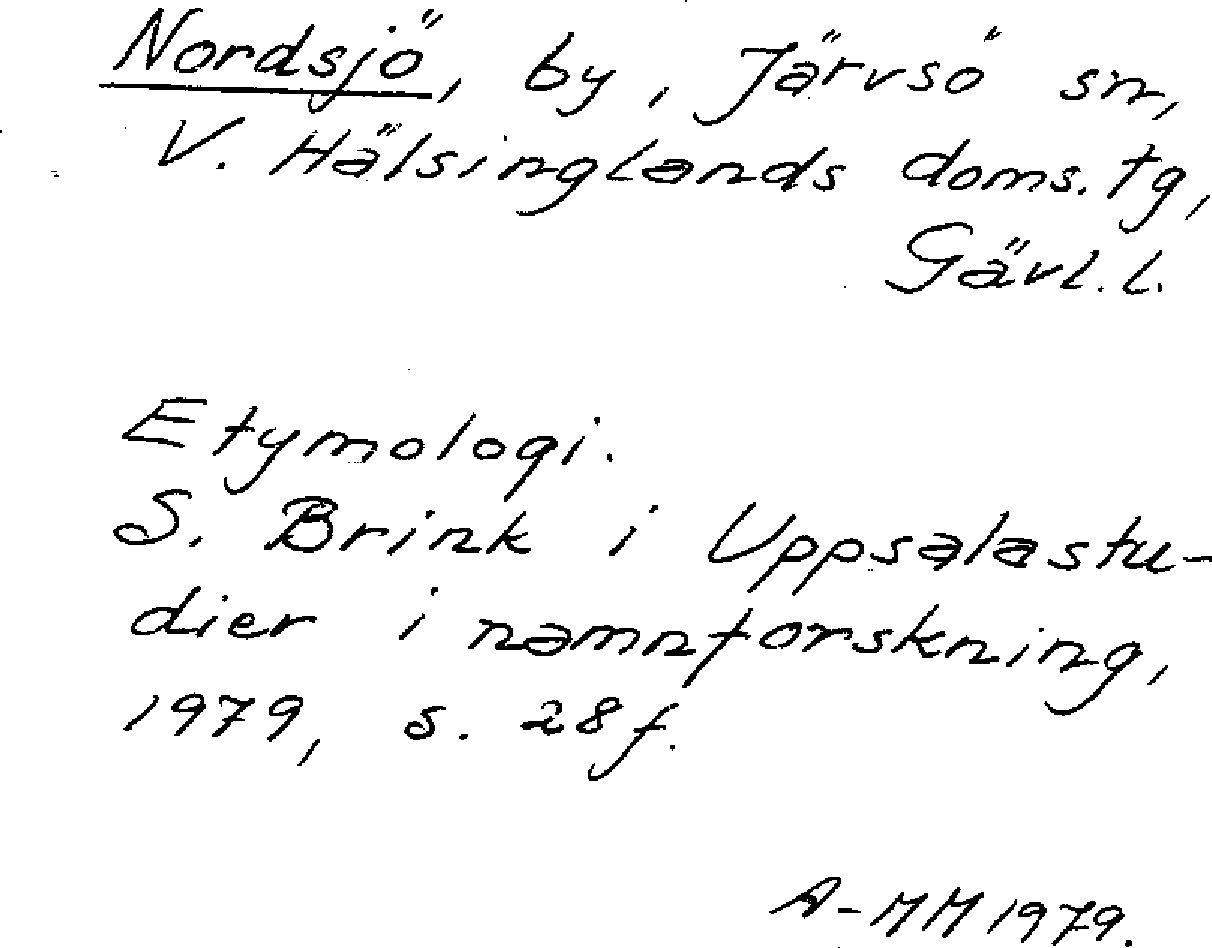 Nordsjö, by, Järvsö sn,
V. Hälsinglands doms. tg,
Gävl. l.
Etymologi.
S. Brink i Uppsalastu-
dier i namnforskning,
1979, s. 28 f.
A-MM 1979.